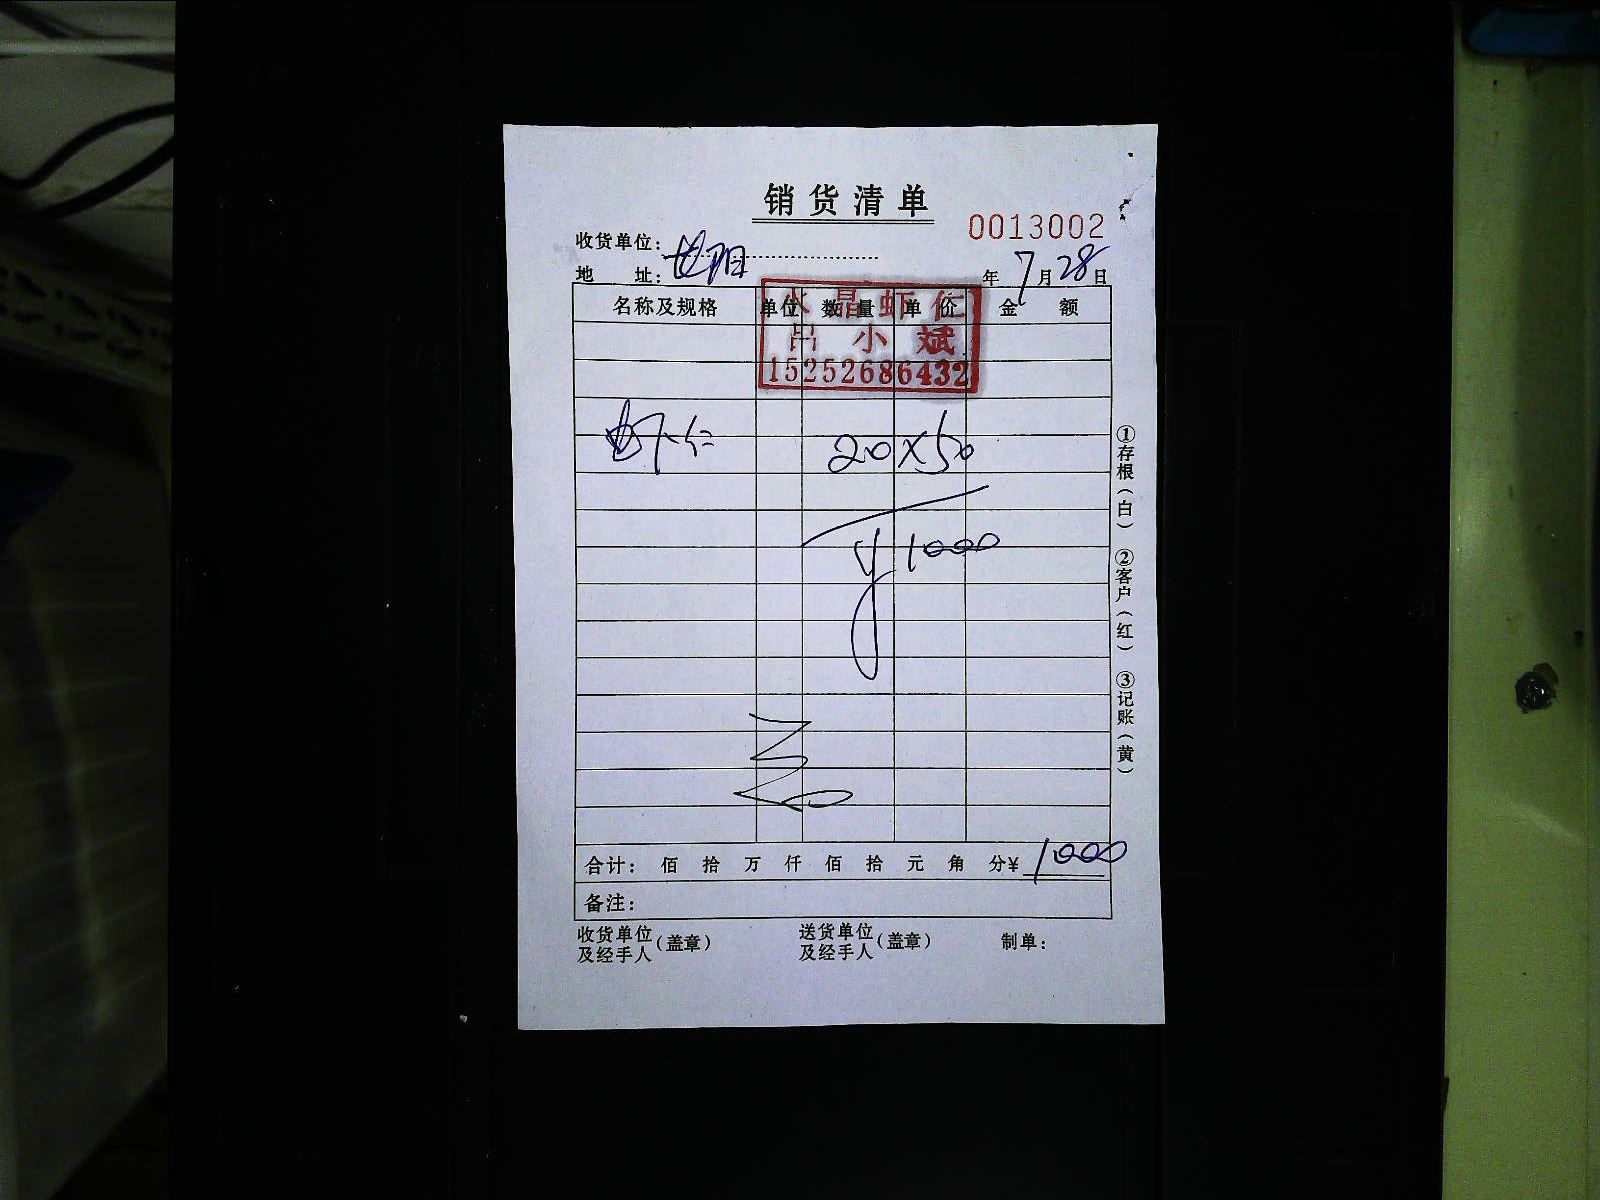 销货清单
0013002
收货单位:
地 址:
年 7 月 28 日
名称及规格 单位 数量 单价 金额
水晶虾仁
吕小斌
15252686432
虾仁 20×50
¥1000
合计: 佰 拾 万 仟 佰 拾 元 角 分¥ 1000
备注:
收货单位及经手人(盖章) 送货单位及经手人(盖章) 制单:
①存根(白) ②客户(红) ③记账(黄)